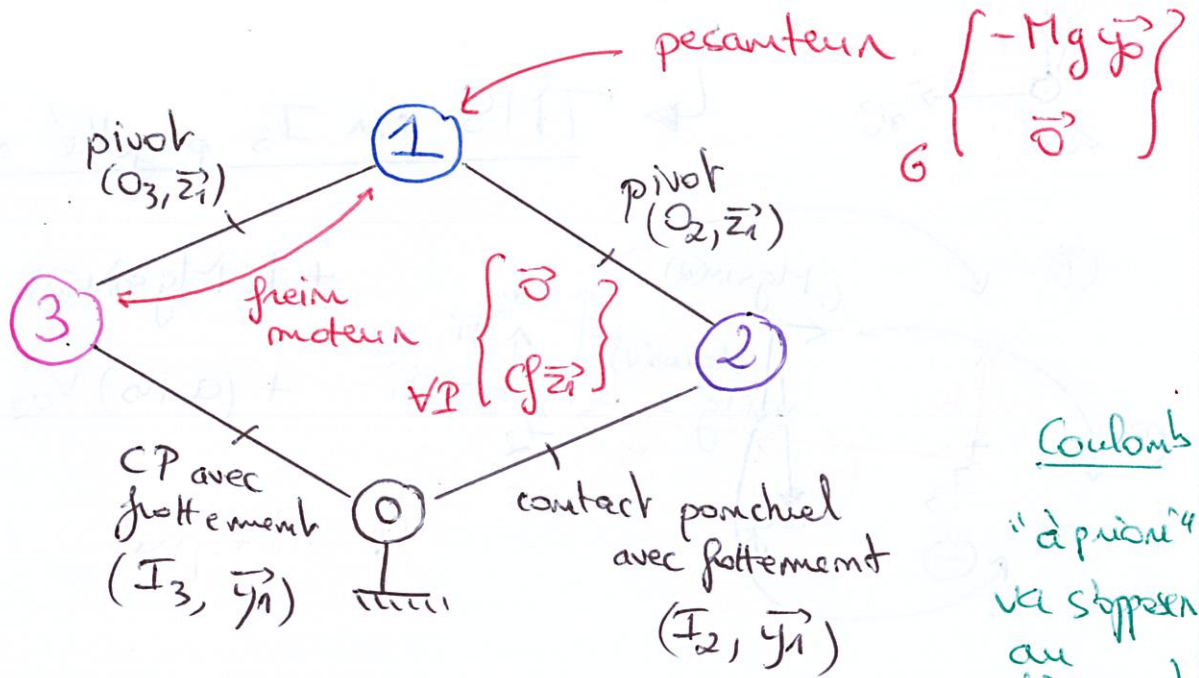 pesanteur
{-Mg y0→
0→}
G
1
pivot
(O3, z1→)
pivot
(O2, z1→)
frein
moteur
∀P {0→
Cf z1→}
3
2
0
CP avec
frottement
(I3, y1→)
contact ponctuel
avec frottement
(I2, y1→)
Coulomb
"à priori"
va s'opposer
au